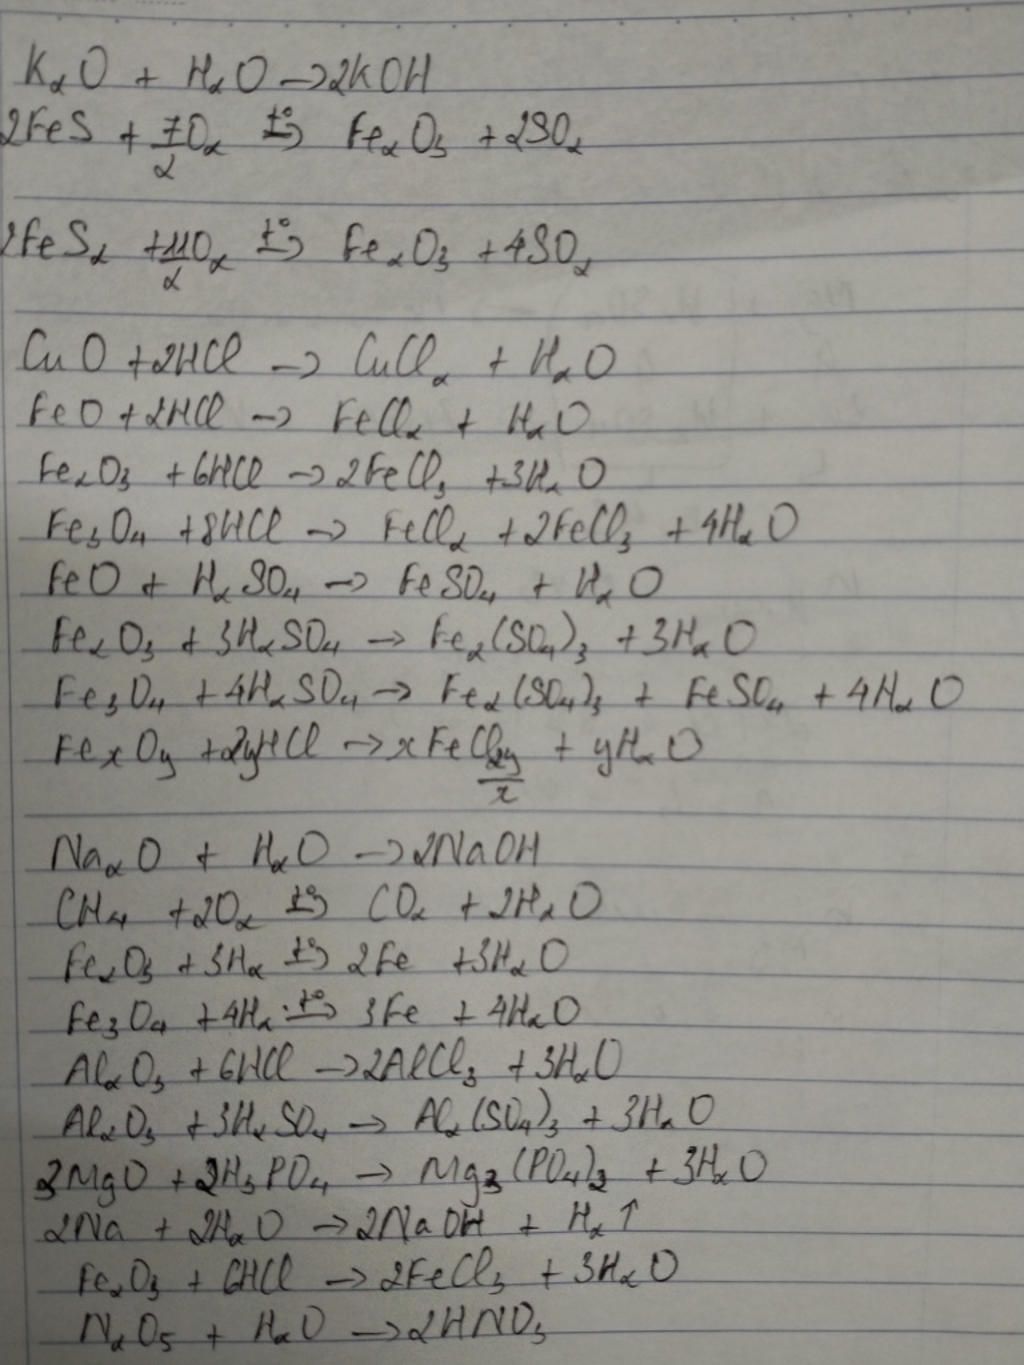 K₂O + H₂O → 2KOH
2FeS + 7/2 O₂ →(t°) Fe₂O₃ + 2SO₂
2FeS₂ + 11/2 O₂ →(t°) Fe₂O₃ + 4SO₂
CuO + 2HCl → CuCl₂ + H₂O
FeO + 2HCl → FeCl₂ + H₂O
Fe₂O₃ + 6HCl → 2FeCl₃ + 3H₂O
Fe₃O₄ + 8HCl → FeCl₂ + 2FeCl₃ + 4H₂O
FeO + H₂SO₄ → FeSO₄ + H₂O
Fe₂O₃ + 3H₂SO₄ → Fe₂(SO₄)₃ + 3H₂O
Fe₃O₄ + 4H₂SO₄ → Fe₂(SO₄)₃ + FeSO₄ + 4H₂O
FexOy + 2yHCl → xFeCl2y/x + yH₂O
Na₂O + H₂O → 2NaOH
CH₄ + 2O₂ →(t°) CO₂ + 2H₂O
Fe₂O₃ + 3H₂ →(t°) 2Fe + 3H₂O
Fe₃O₄ + 4H₂ →(t°) 3Fe + 4H₂O
Al₂O₃ + 6HCl → 2AlCl₃ + 3H₂O
Al₂O₃ + 3H₂SO₄ → Al₂(SO₄)₃ + 3H₂O
3MgO + 2H₃PO₄ → Mg₃(PO₄)₂ + 3H₂O
2Na + 2H₂O → 2NaOH + H₂↑
Fe₂O₃ + 6HCl → 2FeCl₃ + 3H₂O
N₂O₅ + H₂O → 2HNO₃